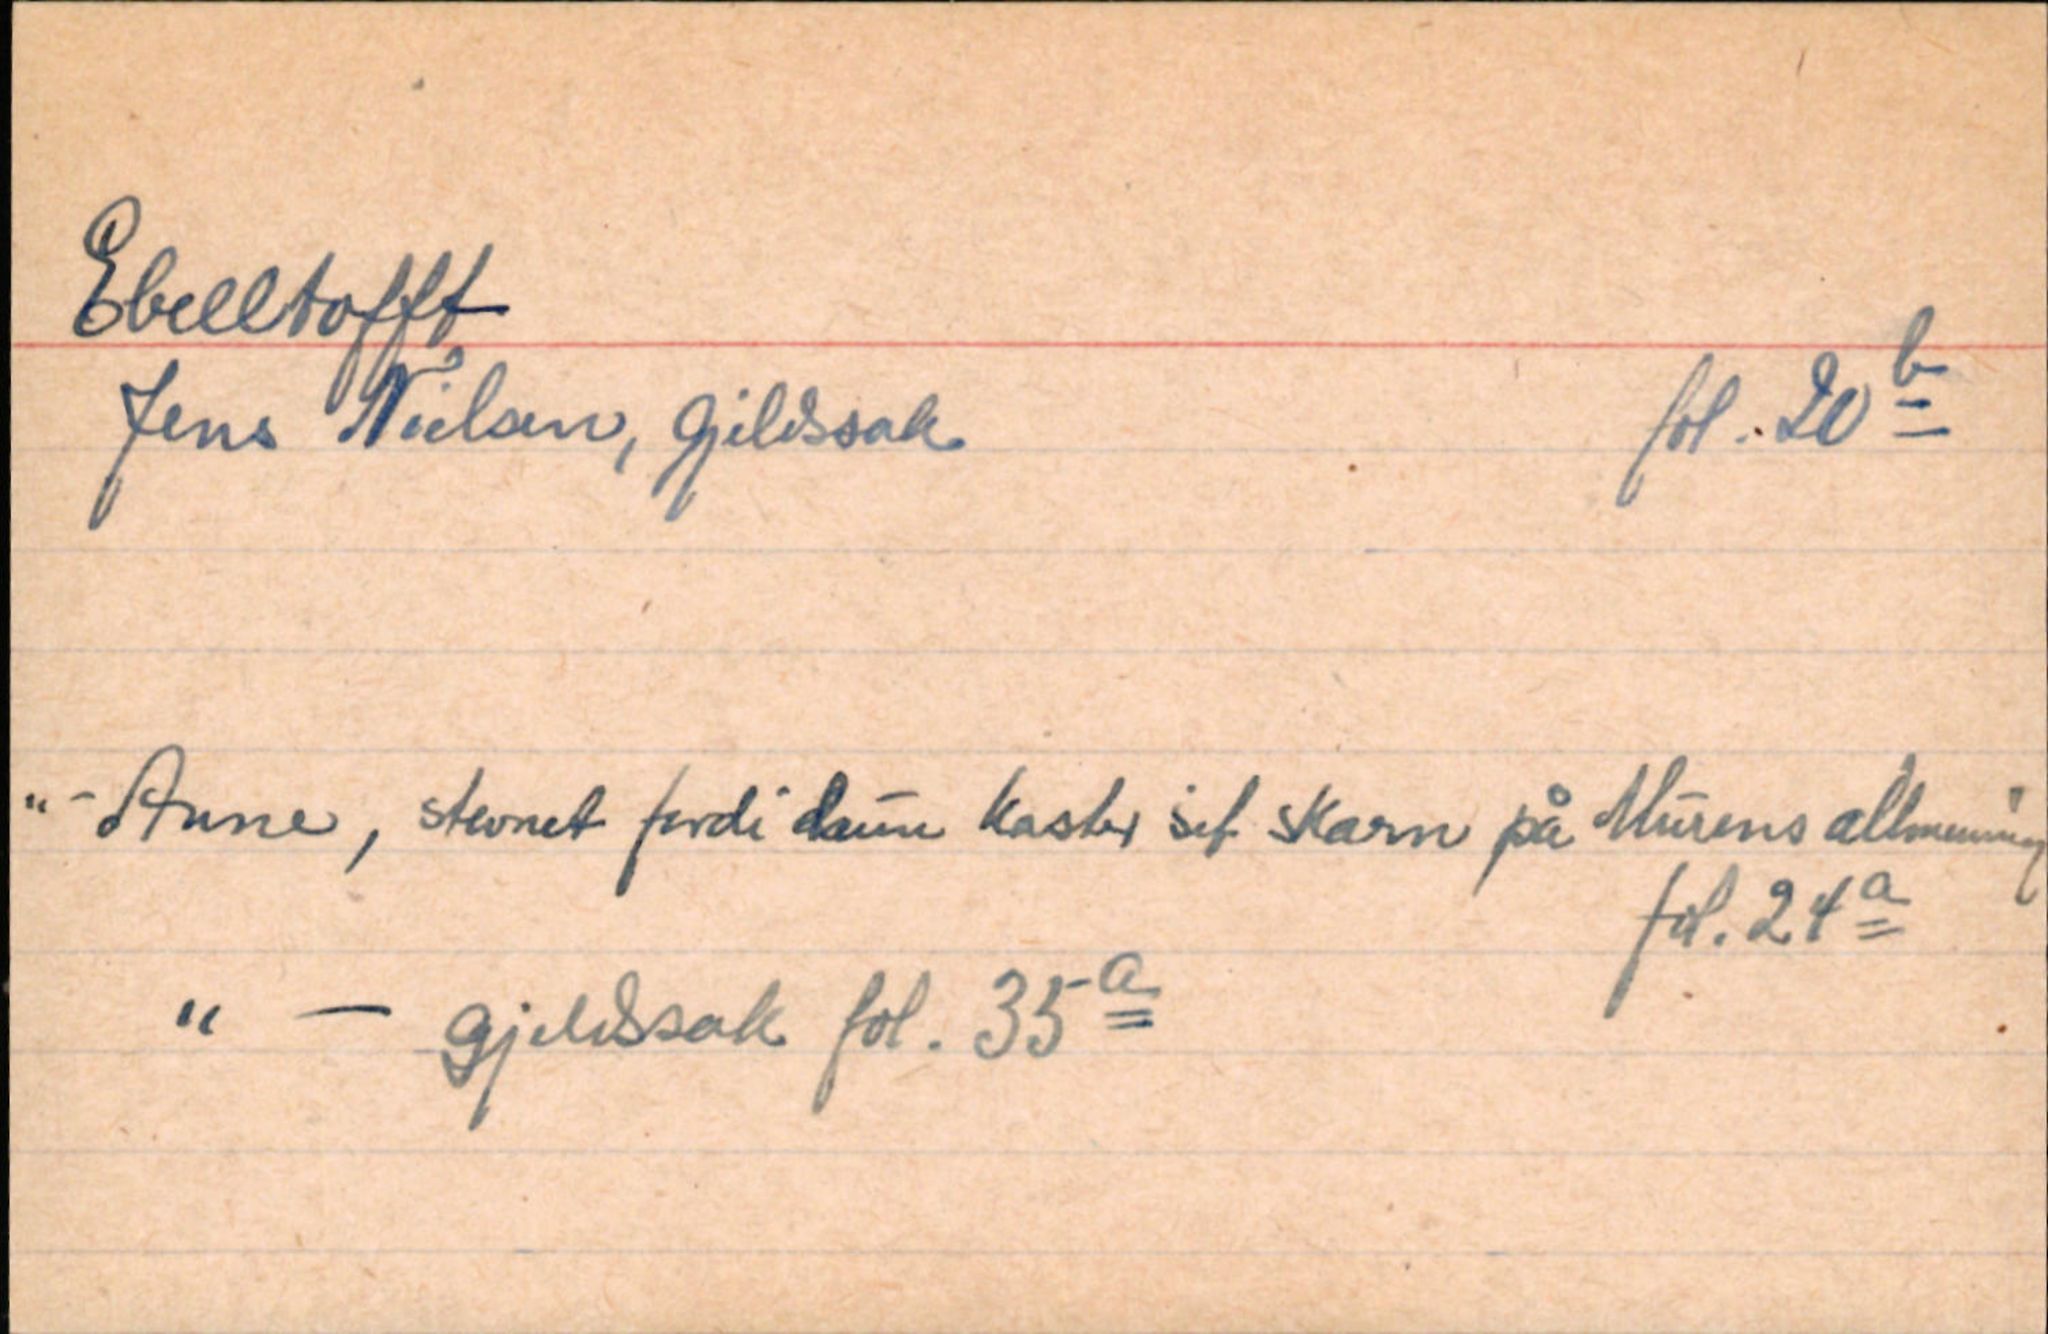 Ebelltofft
Jens Nielsen, gjeldssak fol. 20 b
"- Anne, stevnet fordi kaster sit skarn på Murens allmenning
fol. 24 a
" — gjeldssak fol. 35 a